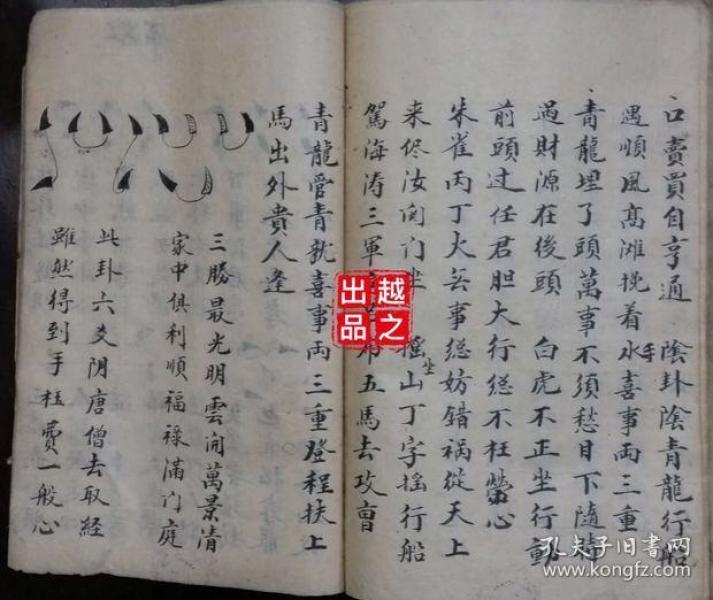 口賣買自亨通 陰卦陰青龍行船
遇順風髙滩挽着水手喜事両三重
青龍埋了頭萬事不須愁目下隨時
過財源在後頭 白虎不正坐行動
前頭过任君胆大行縂不枉勞心
朱雀丙丁火芸事縂妨錯祸從天上
来侭汝関门坐 摇山丁字摇行船坐
駕海涛三軍 五馬去攻曹
青龍管青就喜事両三重登程扶上
馬出外貴人逢
三勝最光明雲開萬景清
家中俱利順福禄滿门庭
此卦六爻阴唐僧去取經
雖然得到手枉費一般心
越之
出品
孔夫子旧书网
www.kongfz.com